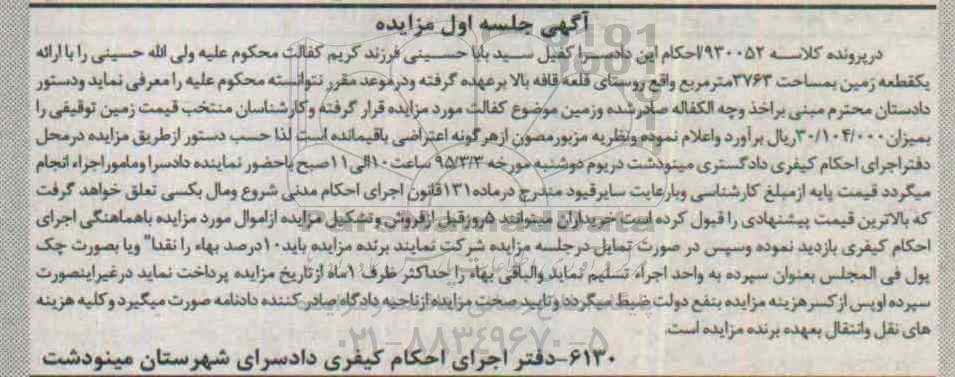 آگهی جلسه اول مزایده
درپرونده کلاسه ۹۳۰۰۵۲/احکام این دادسرا کفیل سید بابا حسینی فرزند کریم کفالت محکوم علیه ولی الله حسینی را با ارائه
یکقطعه زمین بمساحت ۳۷۶۳مترمربع واقع روستای قلعه قافه بالا برعهده گرفته ودرموعد مقرر نتوانسته محکوم علیه را معرفی نماید ودستور
دادستان محترم مبنی براخذ وجه الکفاله صادرشده وزمین موضوع کفالت مورد مزایده قرار گرفته وکارشناسان منتخب قیمت زمین توقیفی را
بمیزان۳۰/۱۰۴/۰۰۰ریال برآورد واعلام نموده ونظریه مزبورمصون ازهرگونه اعتراضی باقیمانده است لذا حسب دستور ازطریق مزایده درمحل
دفتراجرای احکام کیفری دادگستری مینودشت دریوم دوشنبه مورخه ۹۵/۳/۳ ساعت۱۰الی۱۱صبح باحضور نماینده دادسرا وماموراجراء انجام
میگردد قیمت پایه ازمبلغ کارشناسی وبارعایت سایرقیود مندرج درماده۱۳۱قانون اجرای احکام مدنی شروع ومال بکسی تعلق خواهد گرفت
که بالاترین قیمت پیشنهادی را قبول کرده است خریداران میتوانند ۵روزقبل ازفروش وتشکیل مزایده ازاموال مورد مزایده باهماهنگی اجرای
احکام کیفری بازدید نموده وسپس در صورت تمایل درجلسه مزایده شرکت نمایند برنده مزایده باید۱۰درصد بهاء را نقدا" ویا بصورت چک
پول فی المجلس بعنوان سپرده به واحد اجراء تسلیم نماید والباقی بهاء را حداکثر ظرف ۱ماه ازتاریخ مزایده پرداخت نماید درغیراینصورت
سپرده اوپس ازکسرهزینه مزایده بنفع دولت ضبط میگردد وتایید صحت مزایده ازناحیه دادگاه صادرکننده دادنامه صورت میگیرد وکلیه هزینه
های نقل وانتقال بعهده برنده مزایده است.
۰۲۱-۸۸۳۴۹۶۷۰-۵
۶۱۳۰-دفتر اجرای احکام کیفری دادسرای شهرستان مینودشت